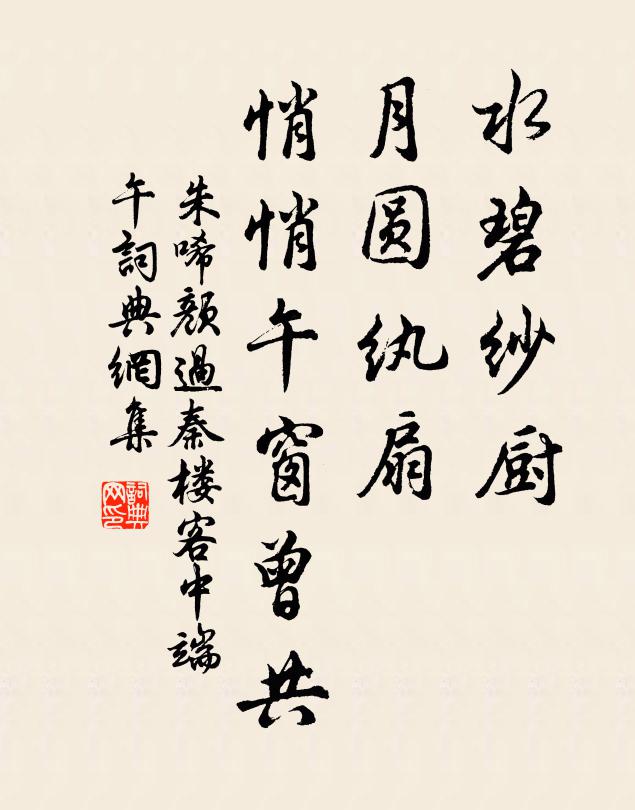 水碧纱厨
月圆纨扇
悄悄午窗曾共
朱唏颜過秦楼客中端
午詞典網集
詞典
网印